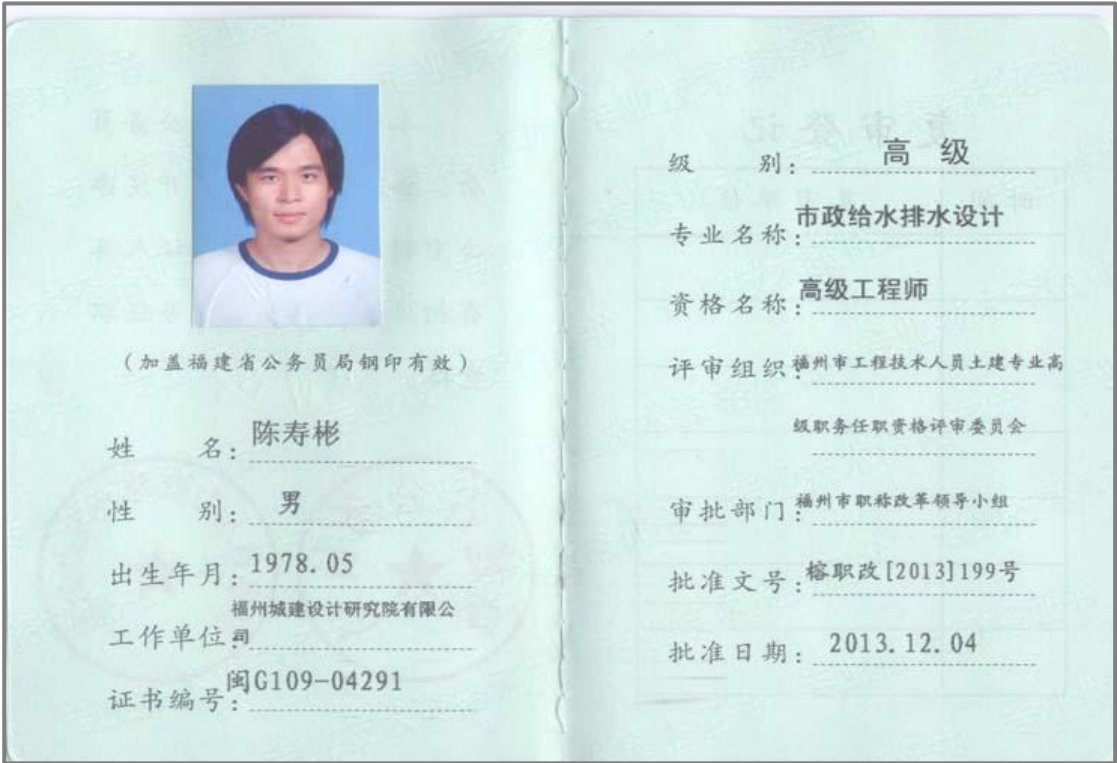 (加盖福建省公务员局钢印有效)
姓 名: 陈寿彬
性 别: 男
出生年月: 1978.05
福州城建设计研究院有限公
工作单位: 司
证书编号: 闽G109-04291
级 别: 高 级
专业名称: 市政给水排水设计
资格名称: 高级工程师
评审组织: 福州市工程技术人员土建专业高
级职务任职资格评审委员会
审批部门: 福州市职称改革领导小组
批准文号: 榕职改[2013]199号
批准日期: 2013.12.04